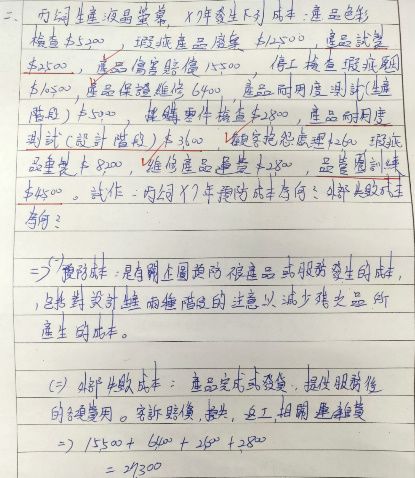 二、丙公司生產液晶螢幕，X7年發生下列成本：產品色彩
檢查$5200，瑕疵產品廢棄$12500，產品試製
$2500，產品傷害賠償15500，停工檢查瑕疵原因
$10500，產品保證維修6400，產品耐用度測試(生產
階段)$5000，進購零件檢查$2800，產品耐用度
測試(設計階段)$3600，顧客抱怨處理$2600，瑕疵
品重製$8200，維修產品運費$2800，品管圈訓練
$4500。試作：丙公司X7年預防成本為何？外部失敗成本
為何？
=> (一)預防成本：是有關企圖預防不良產品或服務發生的成本，
包括對設計 兩種階段的注意以減少瑕疵品所
產生的成本。
(二)外部失敗成本：產品完成或發貨、提供服務後
的各項費用。客訴賠償、換貨、返工、相關運雜費
=> 15,500 + 6400 + 2600 + 2,800
= 27,300